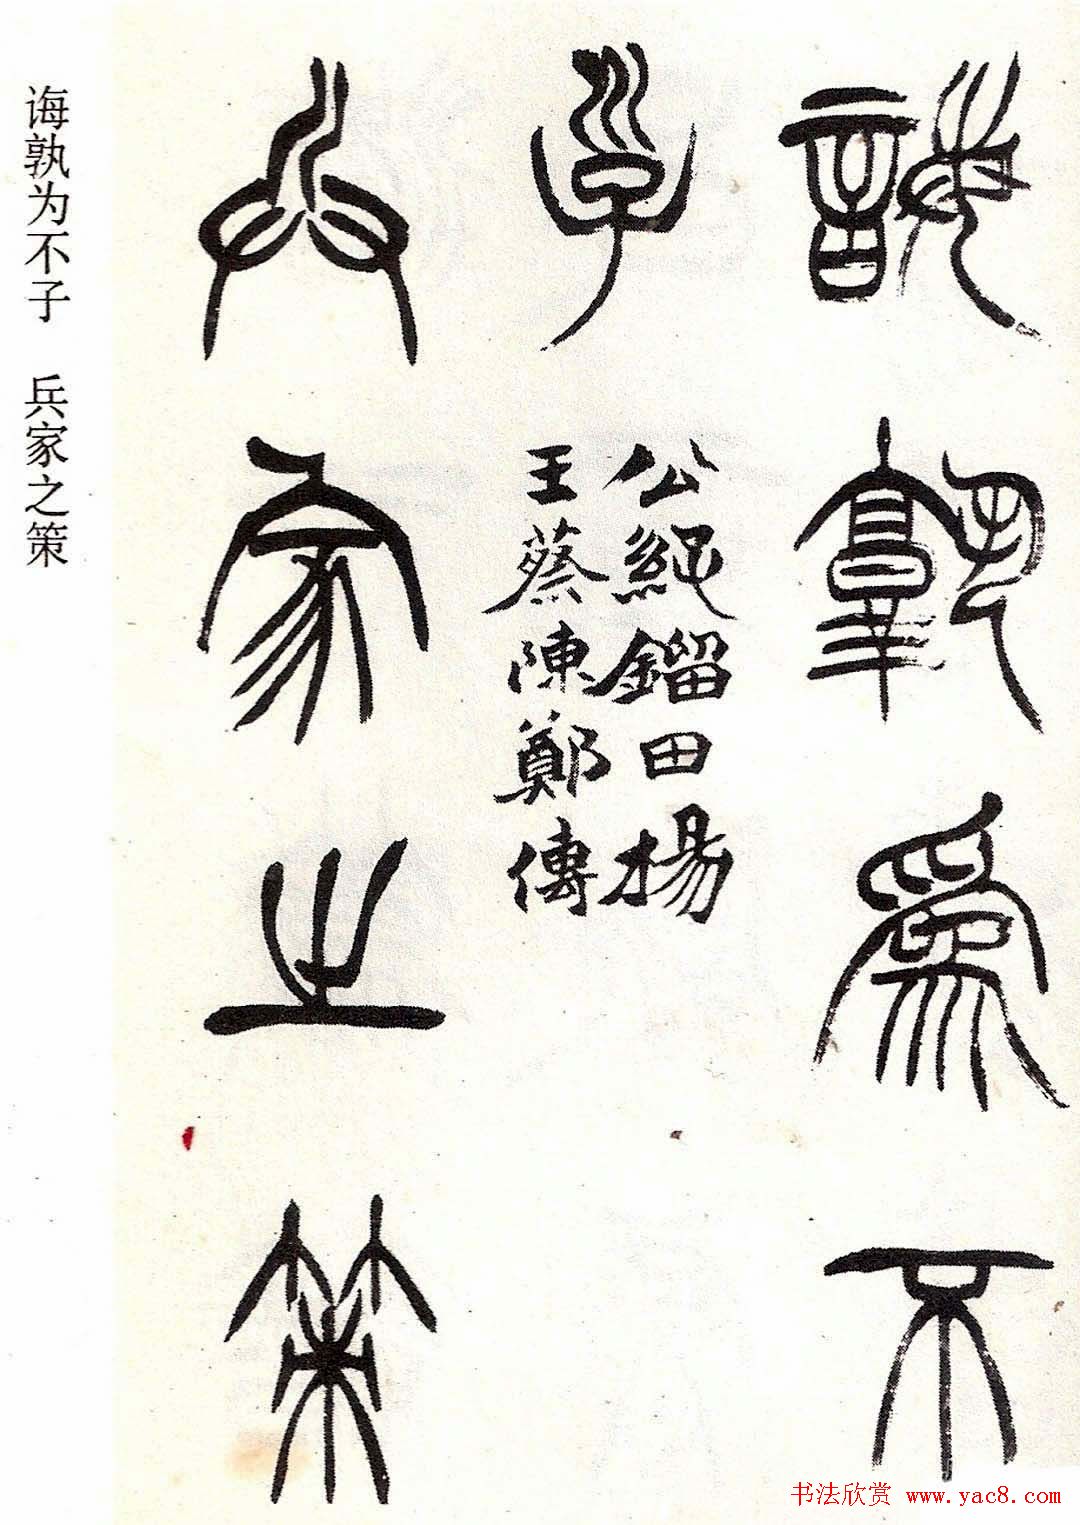 誨孰爲不
子
公純鎦田楊
王蔡陳鄭傳
兵家之策
诲孰为不子 兵家之策
书法欣赏 www.yac8.com